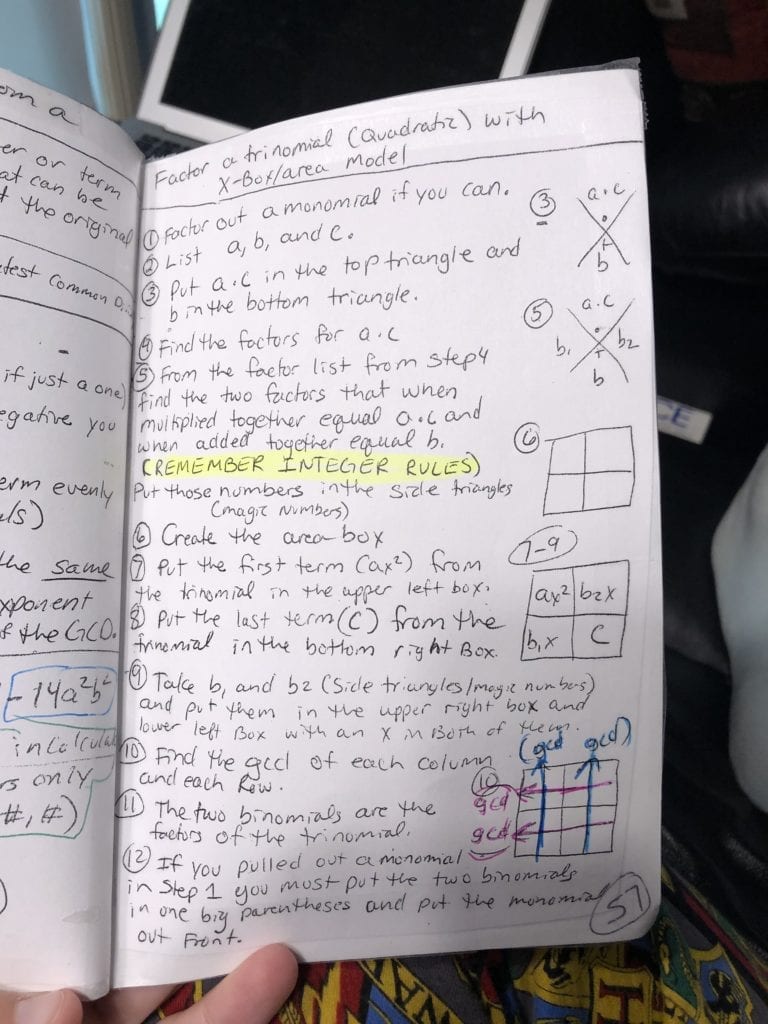 om a
er or term
at can be
t the original
test Common D
if just a one)
egative you
erm evenly
ls)
the same
xponent
f the GCD.
-14a²b²
in Calcula
rs only
#, #)
Factor a trinomial (Quadratic) with
X-Box/area model
① Factor out a monomial if you can.
② List a, b, and c.
③ Put a·c in the top triangle and
b in the bottom triangle.
④ Find the factors for a·c
⑤ From the factor list from step 4
find the two factors that when
multiplied together equal a·c and
when added together equal b.
(REMEMBER INTEGER RULES)
Put those numbers in the side triangles
(magic numbers)
⑥ Create the area box
⑦ Put the first term (ax²) from
the trinomial in the upper left box.
⑧ Put the last term (c) from the
trinomial in the bottom right Box.
⑨ Take b₁ and b₂ (Side triangles/magic numbers)
and put them in the upper right box and
lower left Box with an X in Both of them.
⑩ Find the gcd of each column
and each Row.
⑪ The two binomials are the
factors of the trinomial.
⑫ If you pulled out a monomial
in Step 1 you must put the two binomials
in one big parentheses and put the monomial
out Front.
③
a·c
·
+
b
⑤
a·c
·
b₁ b₂
+
b
⑥
7-9
ax² b₂x
b₁x C
⑩
(gcd gcd)
gcd
gcd
57
CE